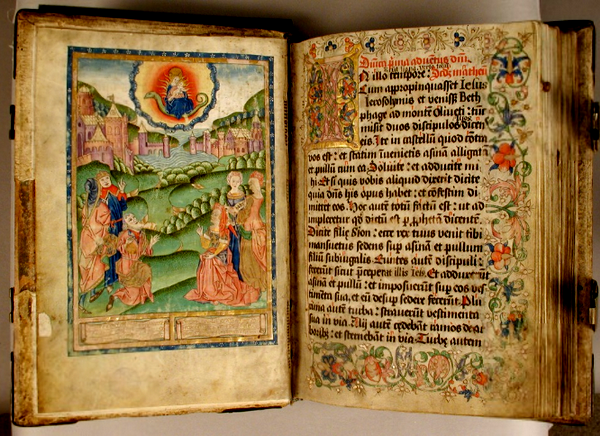 Dnica prima aduentus dni
N illo tempore Scdz matheu
Cum appropinquasset Iesus
Ierosolymis et venisset Beth
phage ad montē Oliueti: tūc
misit duos discipulos dicen
eis: Ite in castellū quod cōtra
vos est: et statim inuenietis asinā alligatā
et pullū cum ea Soluite: et adducite mi
hi Et si quis vobis aliquid dixerit dicite
quia dn̄s hijs opus habet: et cōfestim di
mittet eos Hoc autē totū factū est: ut ad
impleretur qd dictū est p prophetā dicentē
Dicite filie Sion: ecce rex tuus venit tibi
mansuetus sedens sup asinā et pullum
filiū subiugalis Euntes autē discipuli:
fecerūt sicut precepat illis Iesus Et adduxerūt
asinā et pullū: et imposuerūt sup eos ves
timēta sua, et eū desup sedere fecerūt. Plu
rima autē turba: strauerūt vestimenta
sua in via. Alij autē cedebāt ramos de ar
boribus: et sternebāt in via Turbe autem